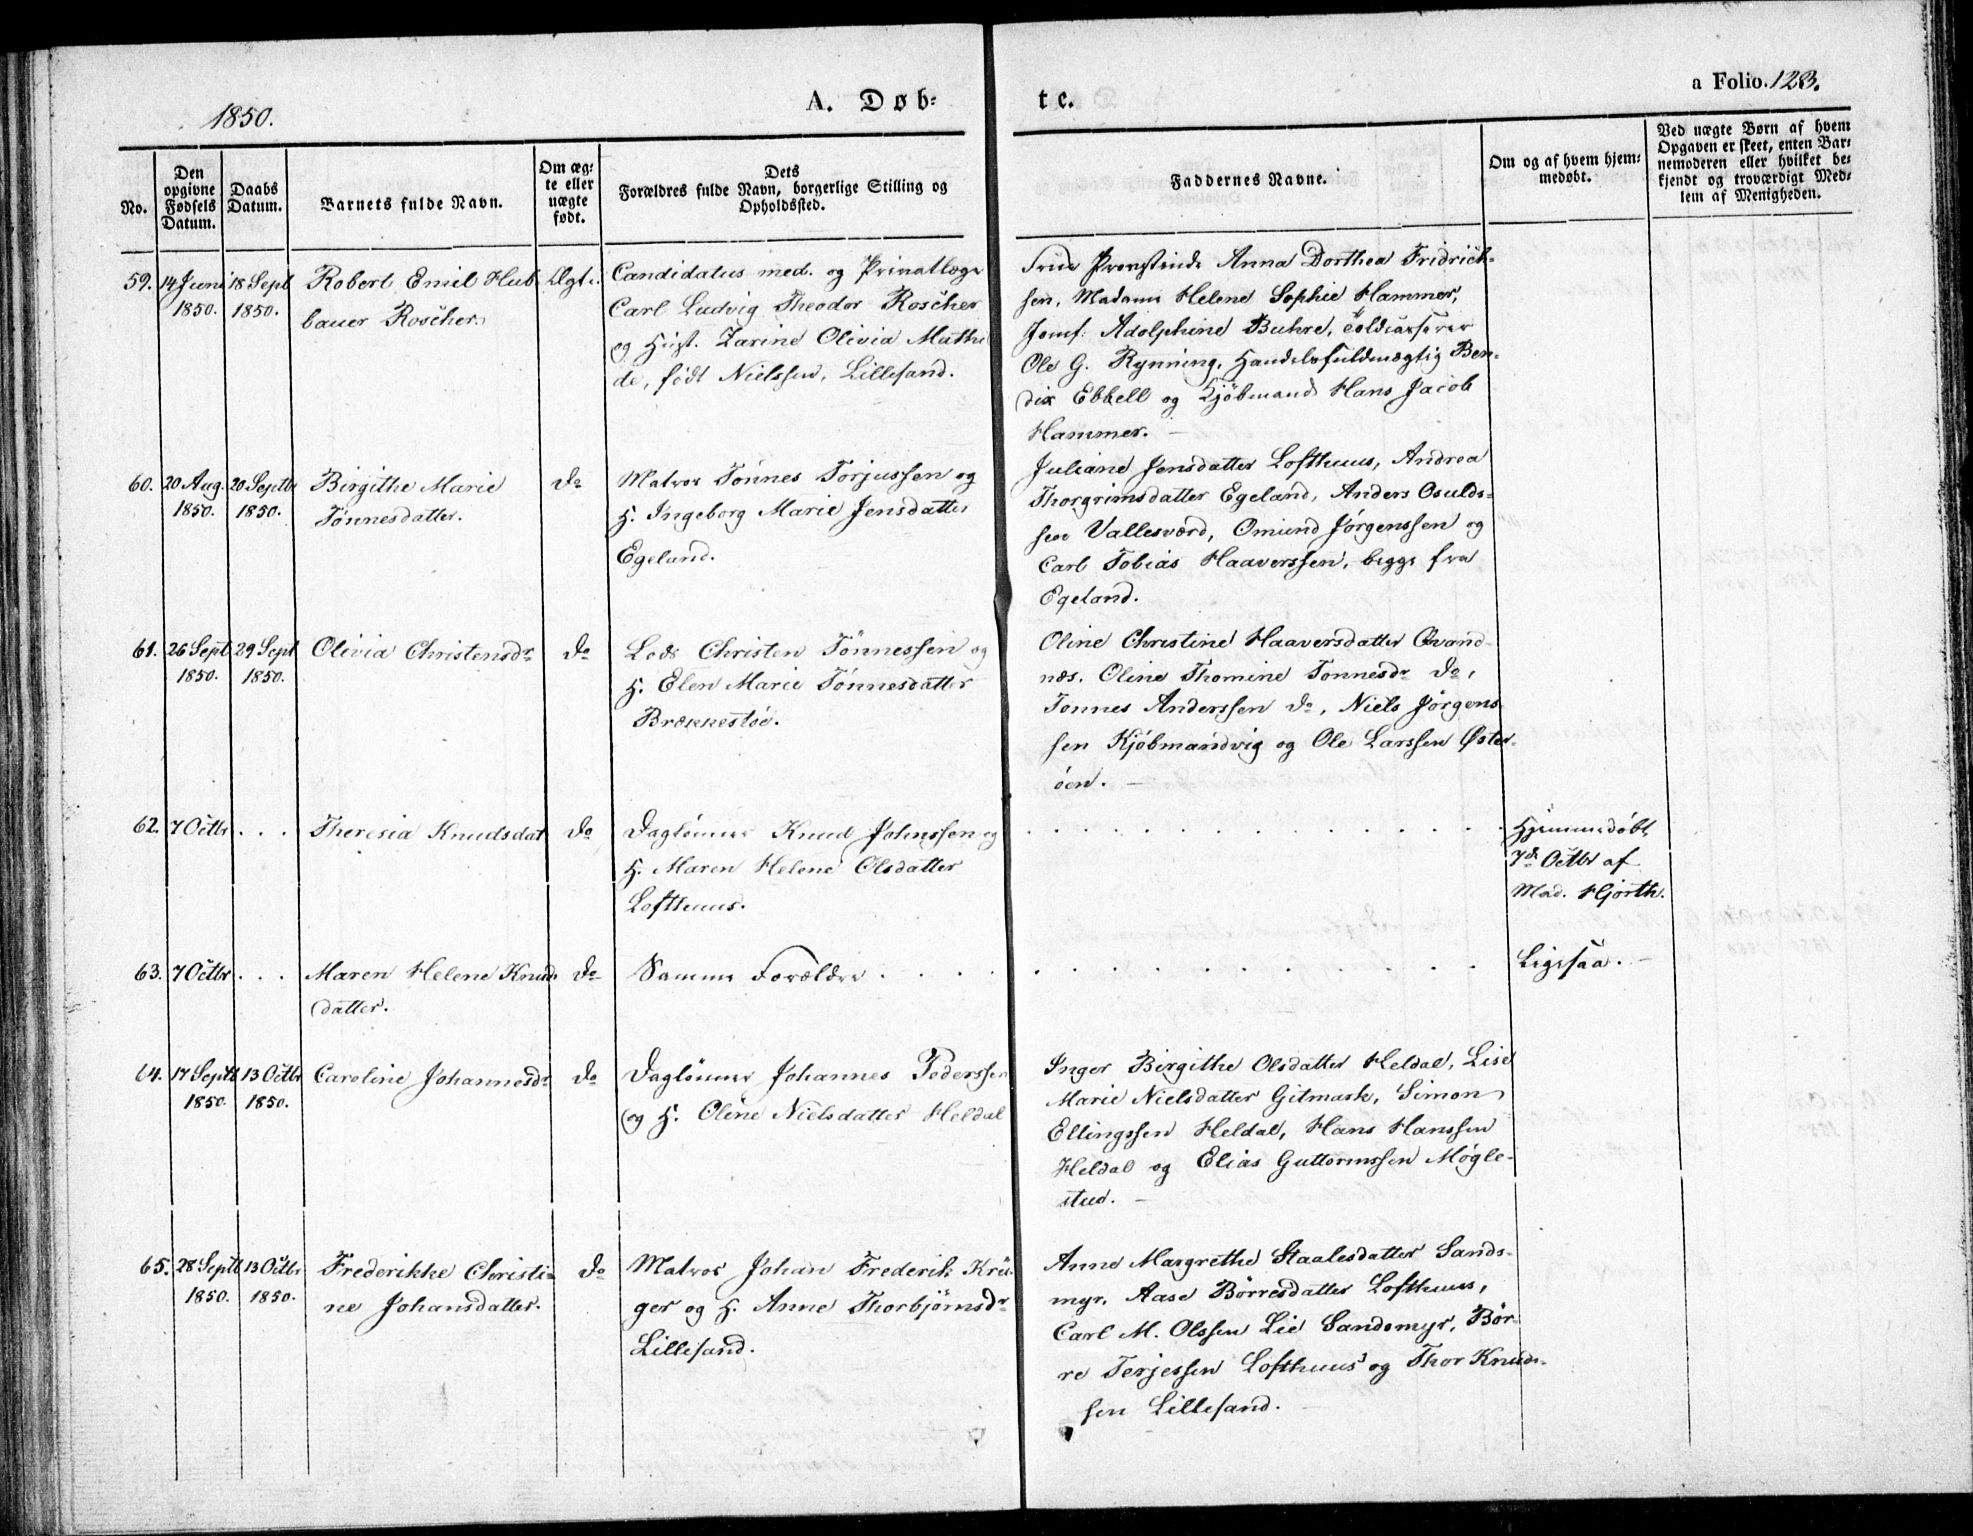 1850.
A. Døb-
te.
a Folio. 123.
No.
Den opgivne Fødsels Datum.
Daabs Datum.
Barnets fulde Navn.
Om ægte eller uægte født.
Dets Forældres fulde Navn, borgerlige Stilling og Opholdssted.
Faddernes Navne.
Om og af hvem hjemmedøbt.
Ved uægte Børn af hvem
Opgaven er skeet, enten Bar-
nemoderen eller hvilket be-
kjendt og troværdigt Med-
lem af Menigheden.
59. 14 Juni 1850. 18 Sept 1850.
Robert Emil Hub
bauer Roscher.
Ægte.
Candidatus med. og Privatlæge
Carl Ludvig Theodor Roscher
og Hust. Zarine Olivia Mathil
de, født Nielssen, Lillesand.
Frue Provstinde Anna Dorthea Fridrich-
sen, Madame Helene Sophie Hammer,
Jomf. Adolphine Buhre, Toldcasserer
Ole G. Rynning, Handelsfuldmægtig Ben-
dix Ebbell og Kjöbmand Hans Jacob
Hammer.
60. 20 Aug. 1850. 20 Septbr 1850.
Birgithe Marie
Tønnesdatter.
do
Matros Tønnes Torjussen og
H. Ingeborg Marie Jensdatter
Egeland.
Juliane Jensdatter Lofthuus, Andrea
Thorgrimsdatter Egeland, Anders Osulds-
sen Vallesværd, Omund Jørgenssen og
Carl Tobias Haaverssen, begge fra
Egeland.
61. 26 Sept 1850. 29 Sept 1850.
Olivia Christensdr
do
Lods Christen Tönnessen og
H. Elen Marie Tönnesdatter
Brækkestöe.
Oline Christine Haaversdatter Qvand-
næs. Oline Thomine Tonnesdr do,
Tonnes Anderssen do, Niels Jörgens
sen Kjöbmandvig og Ole Larssen Øster-
öen.
62. 7 Octbr . . .
Theresia Knudsdat
do
Daglönner Knud Johnssen og
H. Maren Helene Olsdatter
Lofthuus.
Hjemmedöbt
7de Octbr af
Mad. Hjorth.
63. 7 Octbr . . .
Maren Helene Knuds
datter.
do
Samme Forældre . . . .
Ligesaa.
64. 17 Septb 1850. 13 Octbr 1850.
Caroline Johannesdr
do
Daglönner Johannes Pederssen
og H. Oline Nielsdatter Heldal
Inger Birgithe Olsdatter Heldal, Lise
Marie Nielsdatter Gitmark, Simon
Ellingssen Heldal, Hans Hanssen
Heldal og Elias Guttormssen Møgle-
stud.
65. 28 Septb 1850. 13 Octbr 1850.
Frederikke Christi-
ne Johansdatter.
do
Matros Johan Frederik Krü-
ger og H. Anne Thorbjørnsdr
Lillesand.
Anne Margrethe Staalesdatter Sands-
myr, Aase Börresdatter Lofthuus,
Carl M. Olssen Lie Sandsmyr, Bör-
re Terjessen Lofthuus og Thor Knuds-
sen Lillesand.